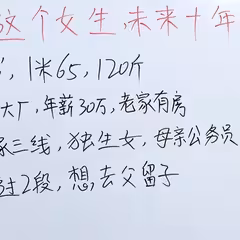 这个女生,未来十年
,1米65,120斤
大厂,年薪30万,老家有房
三线,独生女,母亲公务员
过2段,想去父留子